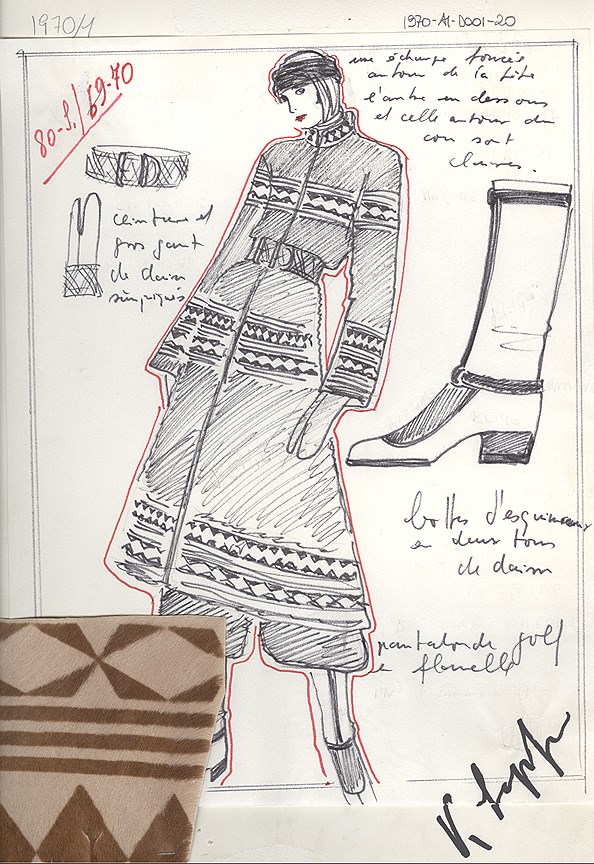 1970/1
1970-A1-D001-20
80-S./69-70
une écharpe foncée
autour de la tête
l'autre en dessous
et celle autour du
cou sont
claires.
ceinture et
gros gant
de daim
surpiqués
bottes d'esquimaux
en deux tons
de daim
pantalon de golf
flanelle